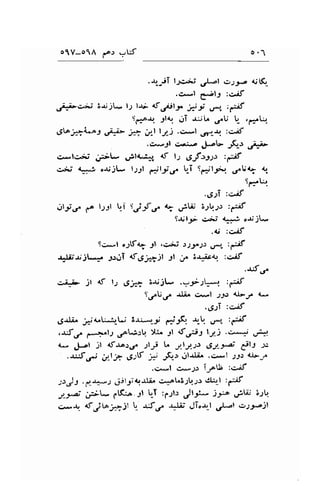 ۵۰۶ کتاب دهم ۵۹۸_۵۹۷
یگانه صورت اصلی تخترا آفرید.
گفت: واضح است.
گفتم: پس تو نیز موافقی که خدا را سازندهٔ تخت حقیقی
بنامیم، یا نامی مانند آن به او دهیم؟
گفت: بدیهی است. زیرا این چیز حقیقی و همهٔ چیزهای
حقیقی دیگر حاصل صنعت اوست.
گفتم: درودگری را که پیشه‌اش ساختن تخت است
چه نامی بخوانیم؟ آیا نمی‌توانیم او را سازندهٔ شبیه تخت
بنامیم؟
گفت: آری.
گفتم: دربارهٔ نقاش چه می‌گوئی؟ آیا او را هم می‌توان
سازندهٔ شبیه تخت خواند؟
گفت: نه.
گفتم: پس درمورد تخت، او چه‌کاره است؟
گفت: به‌عقیدهٔ من او از چیزی که آن دو می‌سازند تقلید
می‌کند.
گفتم: بسیارخوب. سازندهٔ چیزی را که از حقیقت
سه مرحله دور است مقلد می‌نامی؟
گفت: آری.
گفتم: پس باید بگوئیم نویسندهٔ نمایشنامه نیز مقلدی
بیش نیست. زیرا وقتی که او مثلا پادشاهی را مجسم می‌کند،
در واقع تصویری در برابر ما قرار می‌دهد که از اصل سه
مرحله دور است. مقلدان دیگر نیز کاری جز این نمی‌کنند.
گفت: ظاهراً درست است.
گفتم: اینک دربارهٔ ماهیت مقلد به توافق رسیدیم. ولی در
بارهٔ نقاش هنوز سئوالی دارم: آیا او هنگام ساختن تصویر
ازصورت اصلی ایده‌آل تقلید می‌کند یا از چیزهائی که به دست